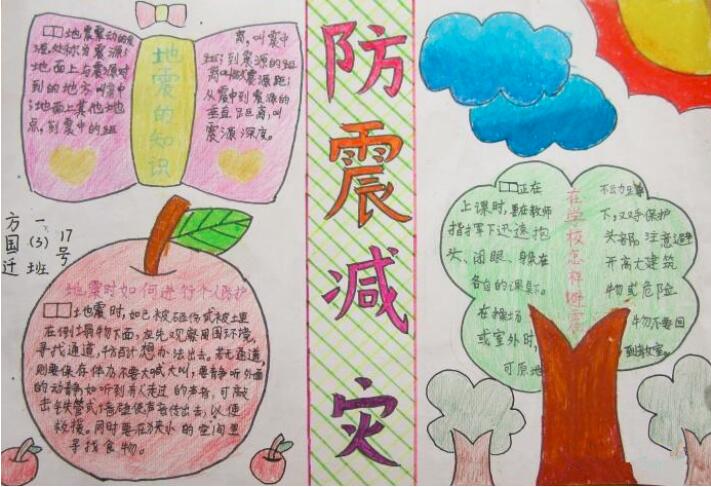 地震的知识
□□地震震动的发
源处称为震源;
地面上与震源对
到的地方叫震中
;地面上其他地
点,到震中的距
离,叫震中
距;到震源的距
离叫做震源距;
从震中到震源的
垂直距离,叫
震源深度。
方国迁
一(3)班
17号
地震时如何进行个人防护
□□地震时,如已被砸伤或被埋
在倒塌物下面,应先观察周围环境,
寻找通道,千方百计想办法出去。若无通道,
则要保存体力不要大喊大叫,要静听外面
的动静,如听到有人走过的声音,可敲
击铁管或墙壁使声音传出去,以便
救援。同时要在狭小的空间里
寻找食物。
防震减灾
在学校怎样避震
□□正在
上课时,要在教师
指挥下迅速抱
头、闭眼、躲在
各自的课桌下。
在操场
或室外时,
可原地
不动蹲
下,双手保护
头部,注意避
开高大建筑
物或危险
物不要回
到教室。